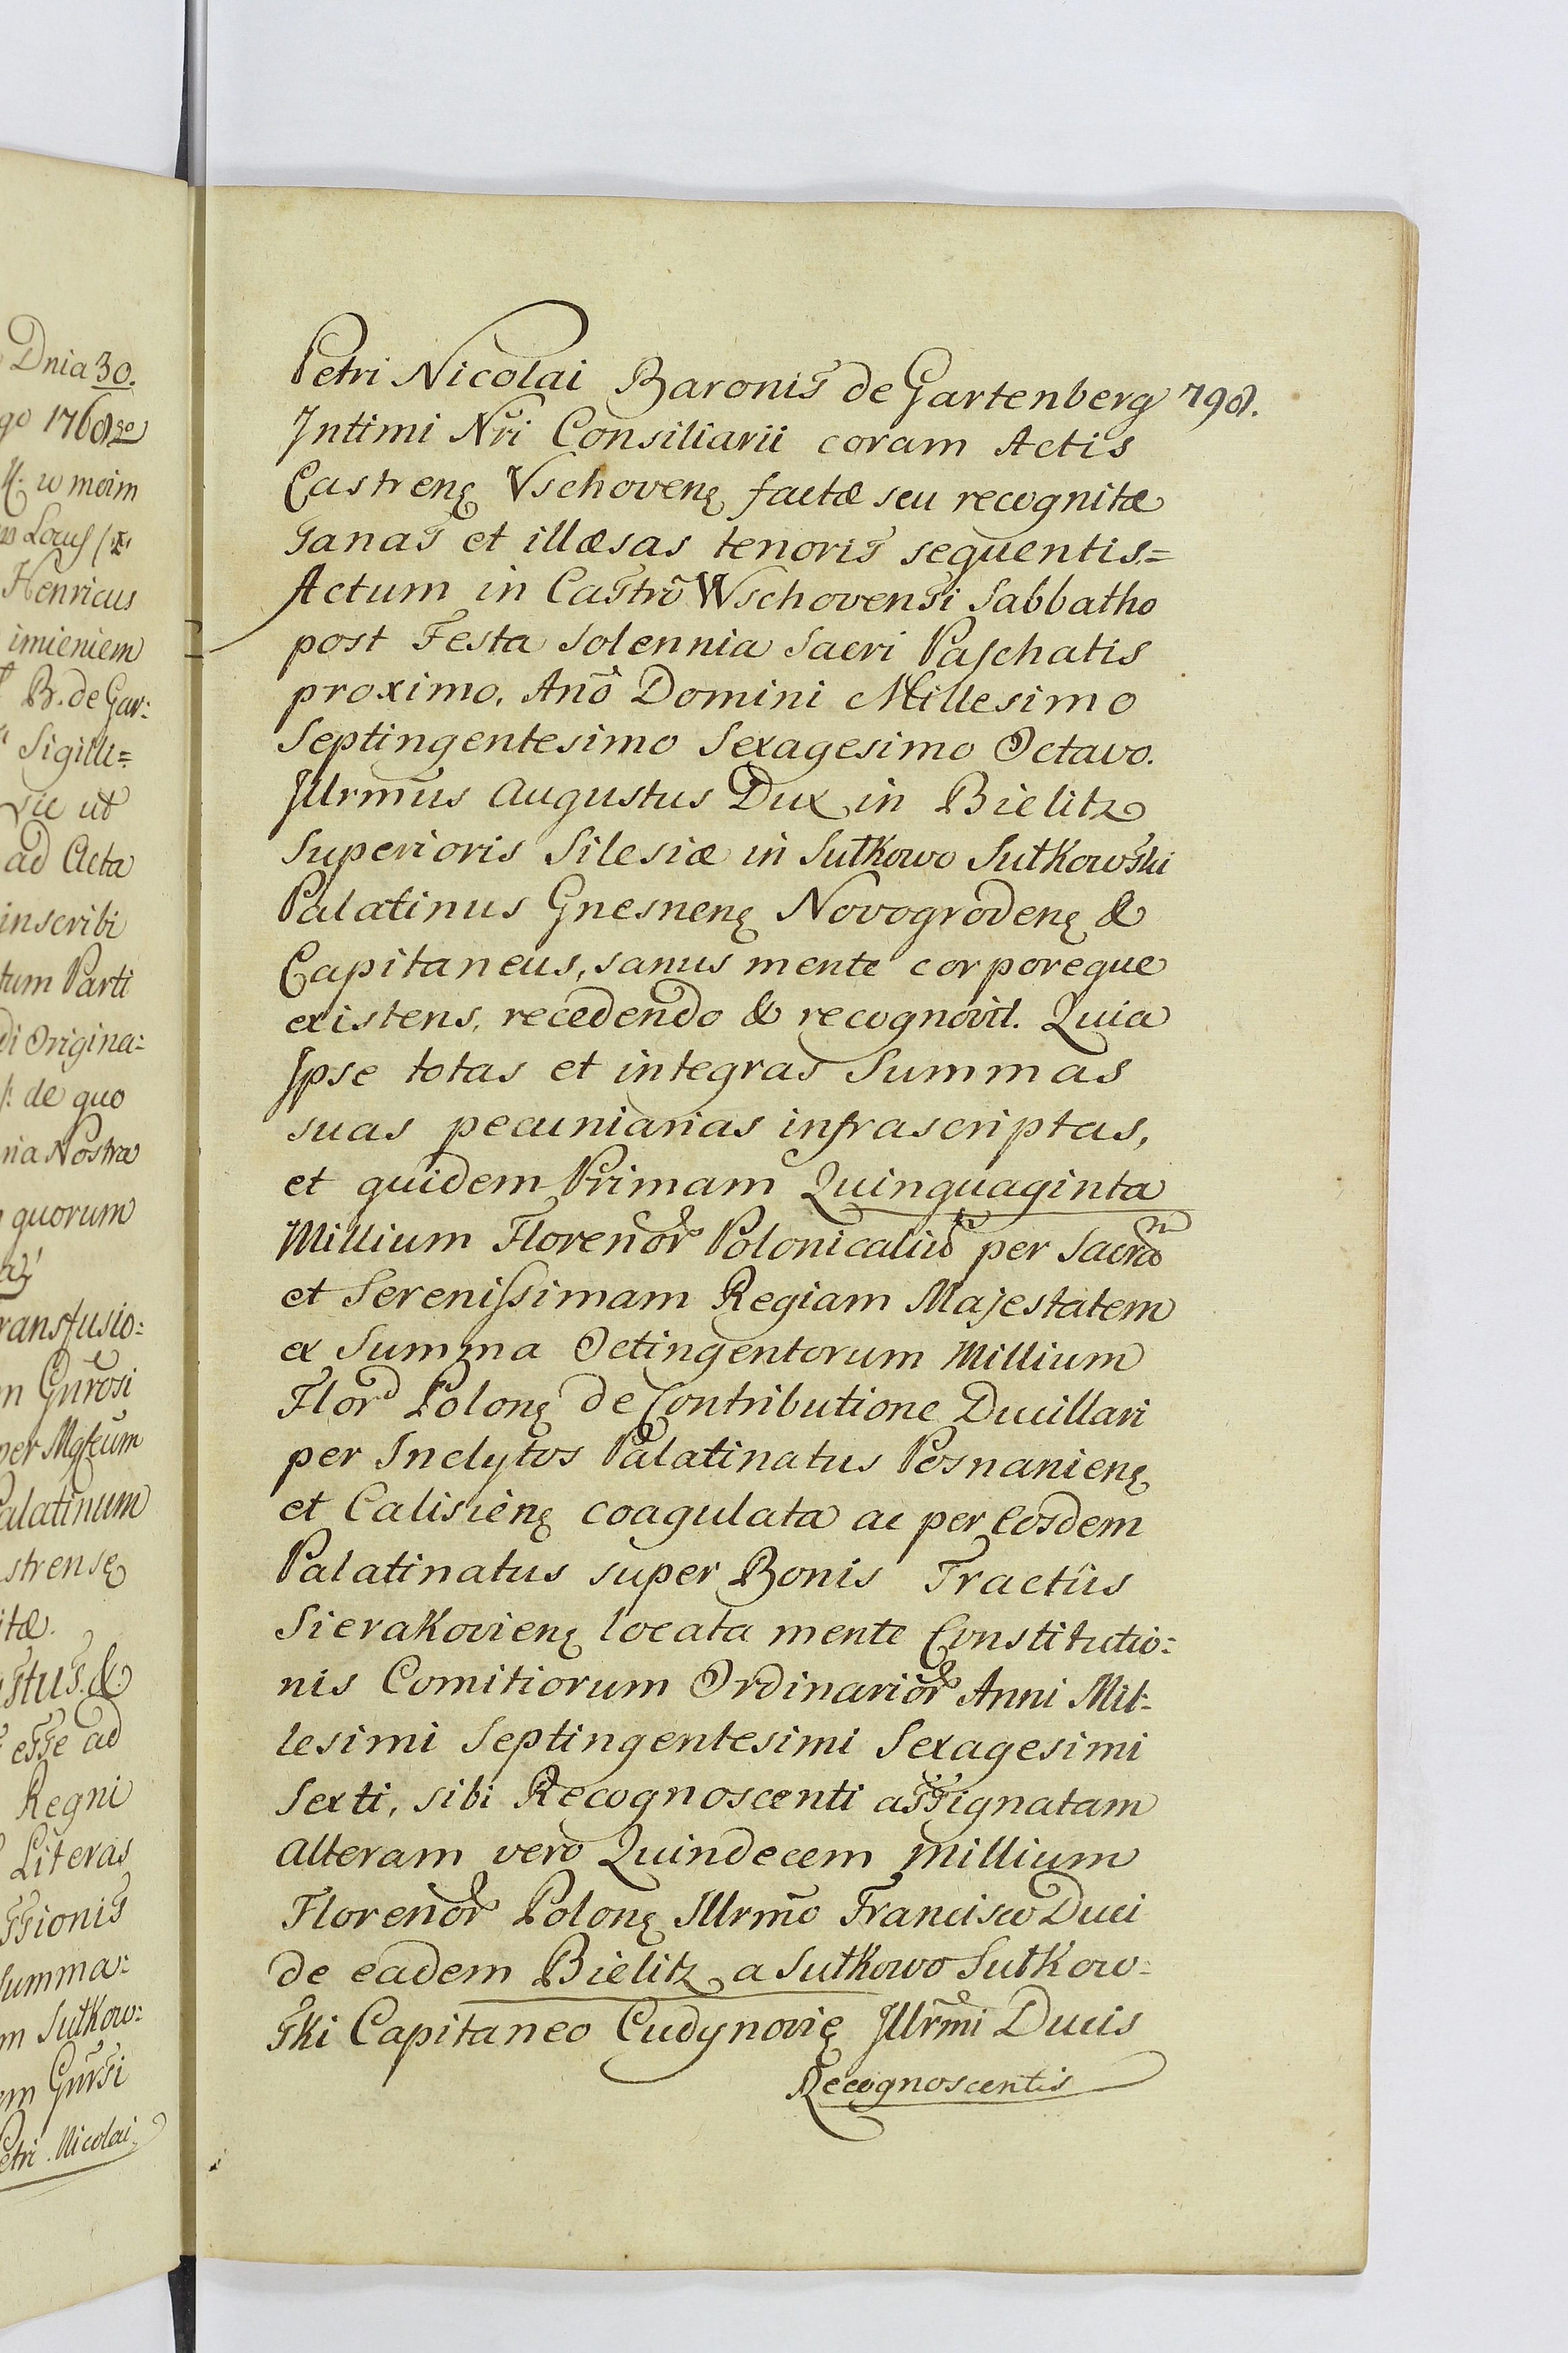 Dnia 30.
go 1768go
M. w moim
Locus
Henricus
imieniem
B. de Gar:
Sigilli=
sic ut
ad Acta
inscribi
tum Parti
di Origina:
de quo
ria Nostra
quorum
ransfusio:
m Gnrosi
per Mgficum
Palatinum
strensę
itæ.
stus &
esse ad
Regni
Literas
ssionis
Summa:
m Sulkow:
em Gnrsi
Petri Nicolai
798.
Petri Nicolai Baronis de Gartenberg
Intimi Nri Consiliarii coram Actis
Castrenę Vschovenę factæ seu recognitæ
sanas et illæsas tenoris sequentis=
Actum in Castro Wschovensi Sabbatho
post Festa Solennia Sacri Paschatis
proximo, Ano Domini Millesimo
Septingentesimo Sexagesimo Octavo.
Illrmus Augustus Dux in Bielitz
Superioris Silesiæ in Sułkowo Sułkowski
Palatinus Gnesnenę Novogrodenę &
Capitaneus, sanus mente corporeque
existens, recedendo & recognovit. Quia
Ipse totas et integras Summas
suas pecuniarias infrascriptas,
et quidem Primam Quinquaginta
Millium Florenor Polonicaliu per Sacram
et Serenissimam Regiam Majestatem
ex Summa Octingentorum Millium
Flor Polonę de Contributione Ducillari
per Inclytos Palatinatus Posnanienę
et Calisienę coagulata ac per Eosdem
Palatinatus super Bonis Tractûs
Sierakovienę locata mente Constitutio:
nis Comitiorum Ordinarior Anni Mil:
lesimi Septingentesimi Sexagesimi
Sexti, sibi Recognoscenti assignatam
alteram vero Quindecem Millium
Florenor Polonę Illrmo Francisco Duci
de eadem Bielitz a Sułkowo Sułkow:
ski Capitaneo Cudynovię Illrmi Ducis
Recognoscentis